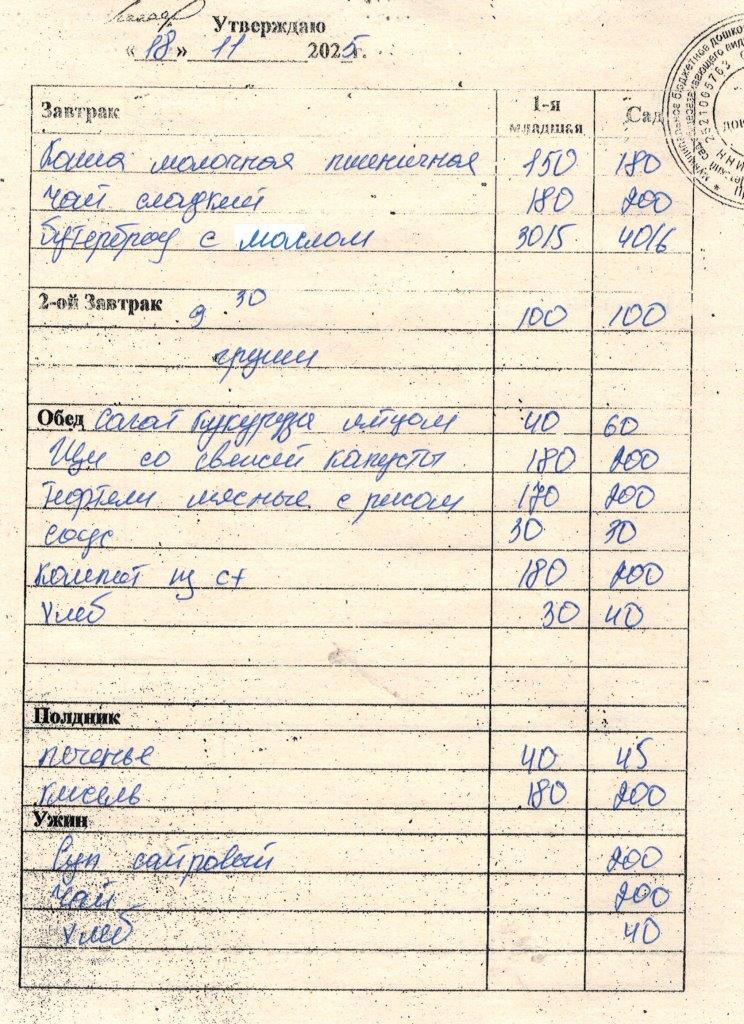 Утверждаю
«18» 11 2025г.
Завтрак 1-я младшая Сад
Каша молочная пшеничная 150 180
Чай сладкий 180 200
Бутерброд с маслом 30/5 40/6
2-ой Завтрак 9 30 100 100
груши
Обед Салат кукуруза яйцом 40 60
Щи со свежей капусты 180 200
Тефтели мясные с рисом 170 200
соус 30 30
Компот из с/ф 180 200
Хлеб 30 40
Полдник
печенье 40 45
кисель 180 200
Ужин
Суп сайровый 200
Чай 200
Хлеб 40